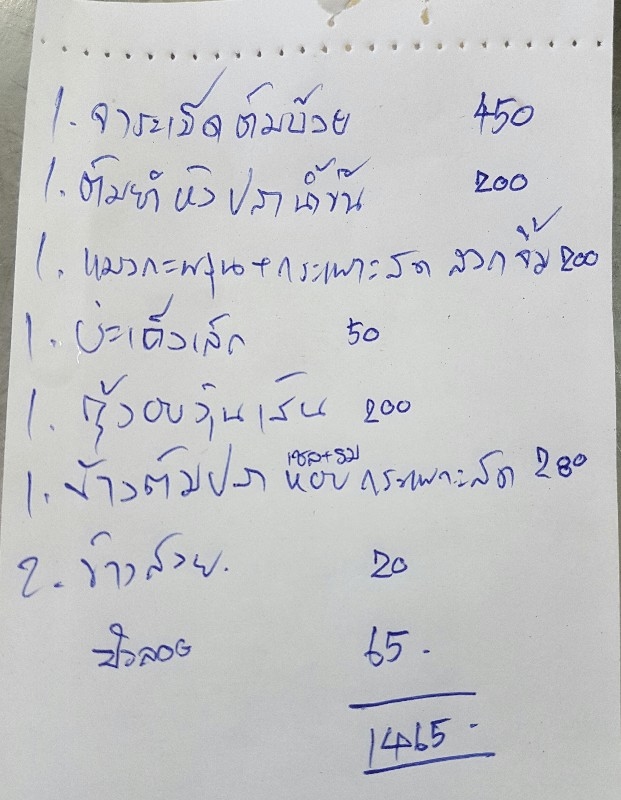 1. จาระเม็ดต้มบ๊วย 450
1. ต้มยำหัวปลาน้ำข้น 200
1. แมงกะพรุน+กระเพาะสด ลวกจิ้ม 200
1. บะเต็งเล็ก 50
1. กุ้งอบวุ้นเส้น 200
1. ข้าวต้มปลา หอย กระเพาะสด 280
2. ข้าวสวย. 20
65.
1465.